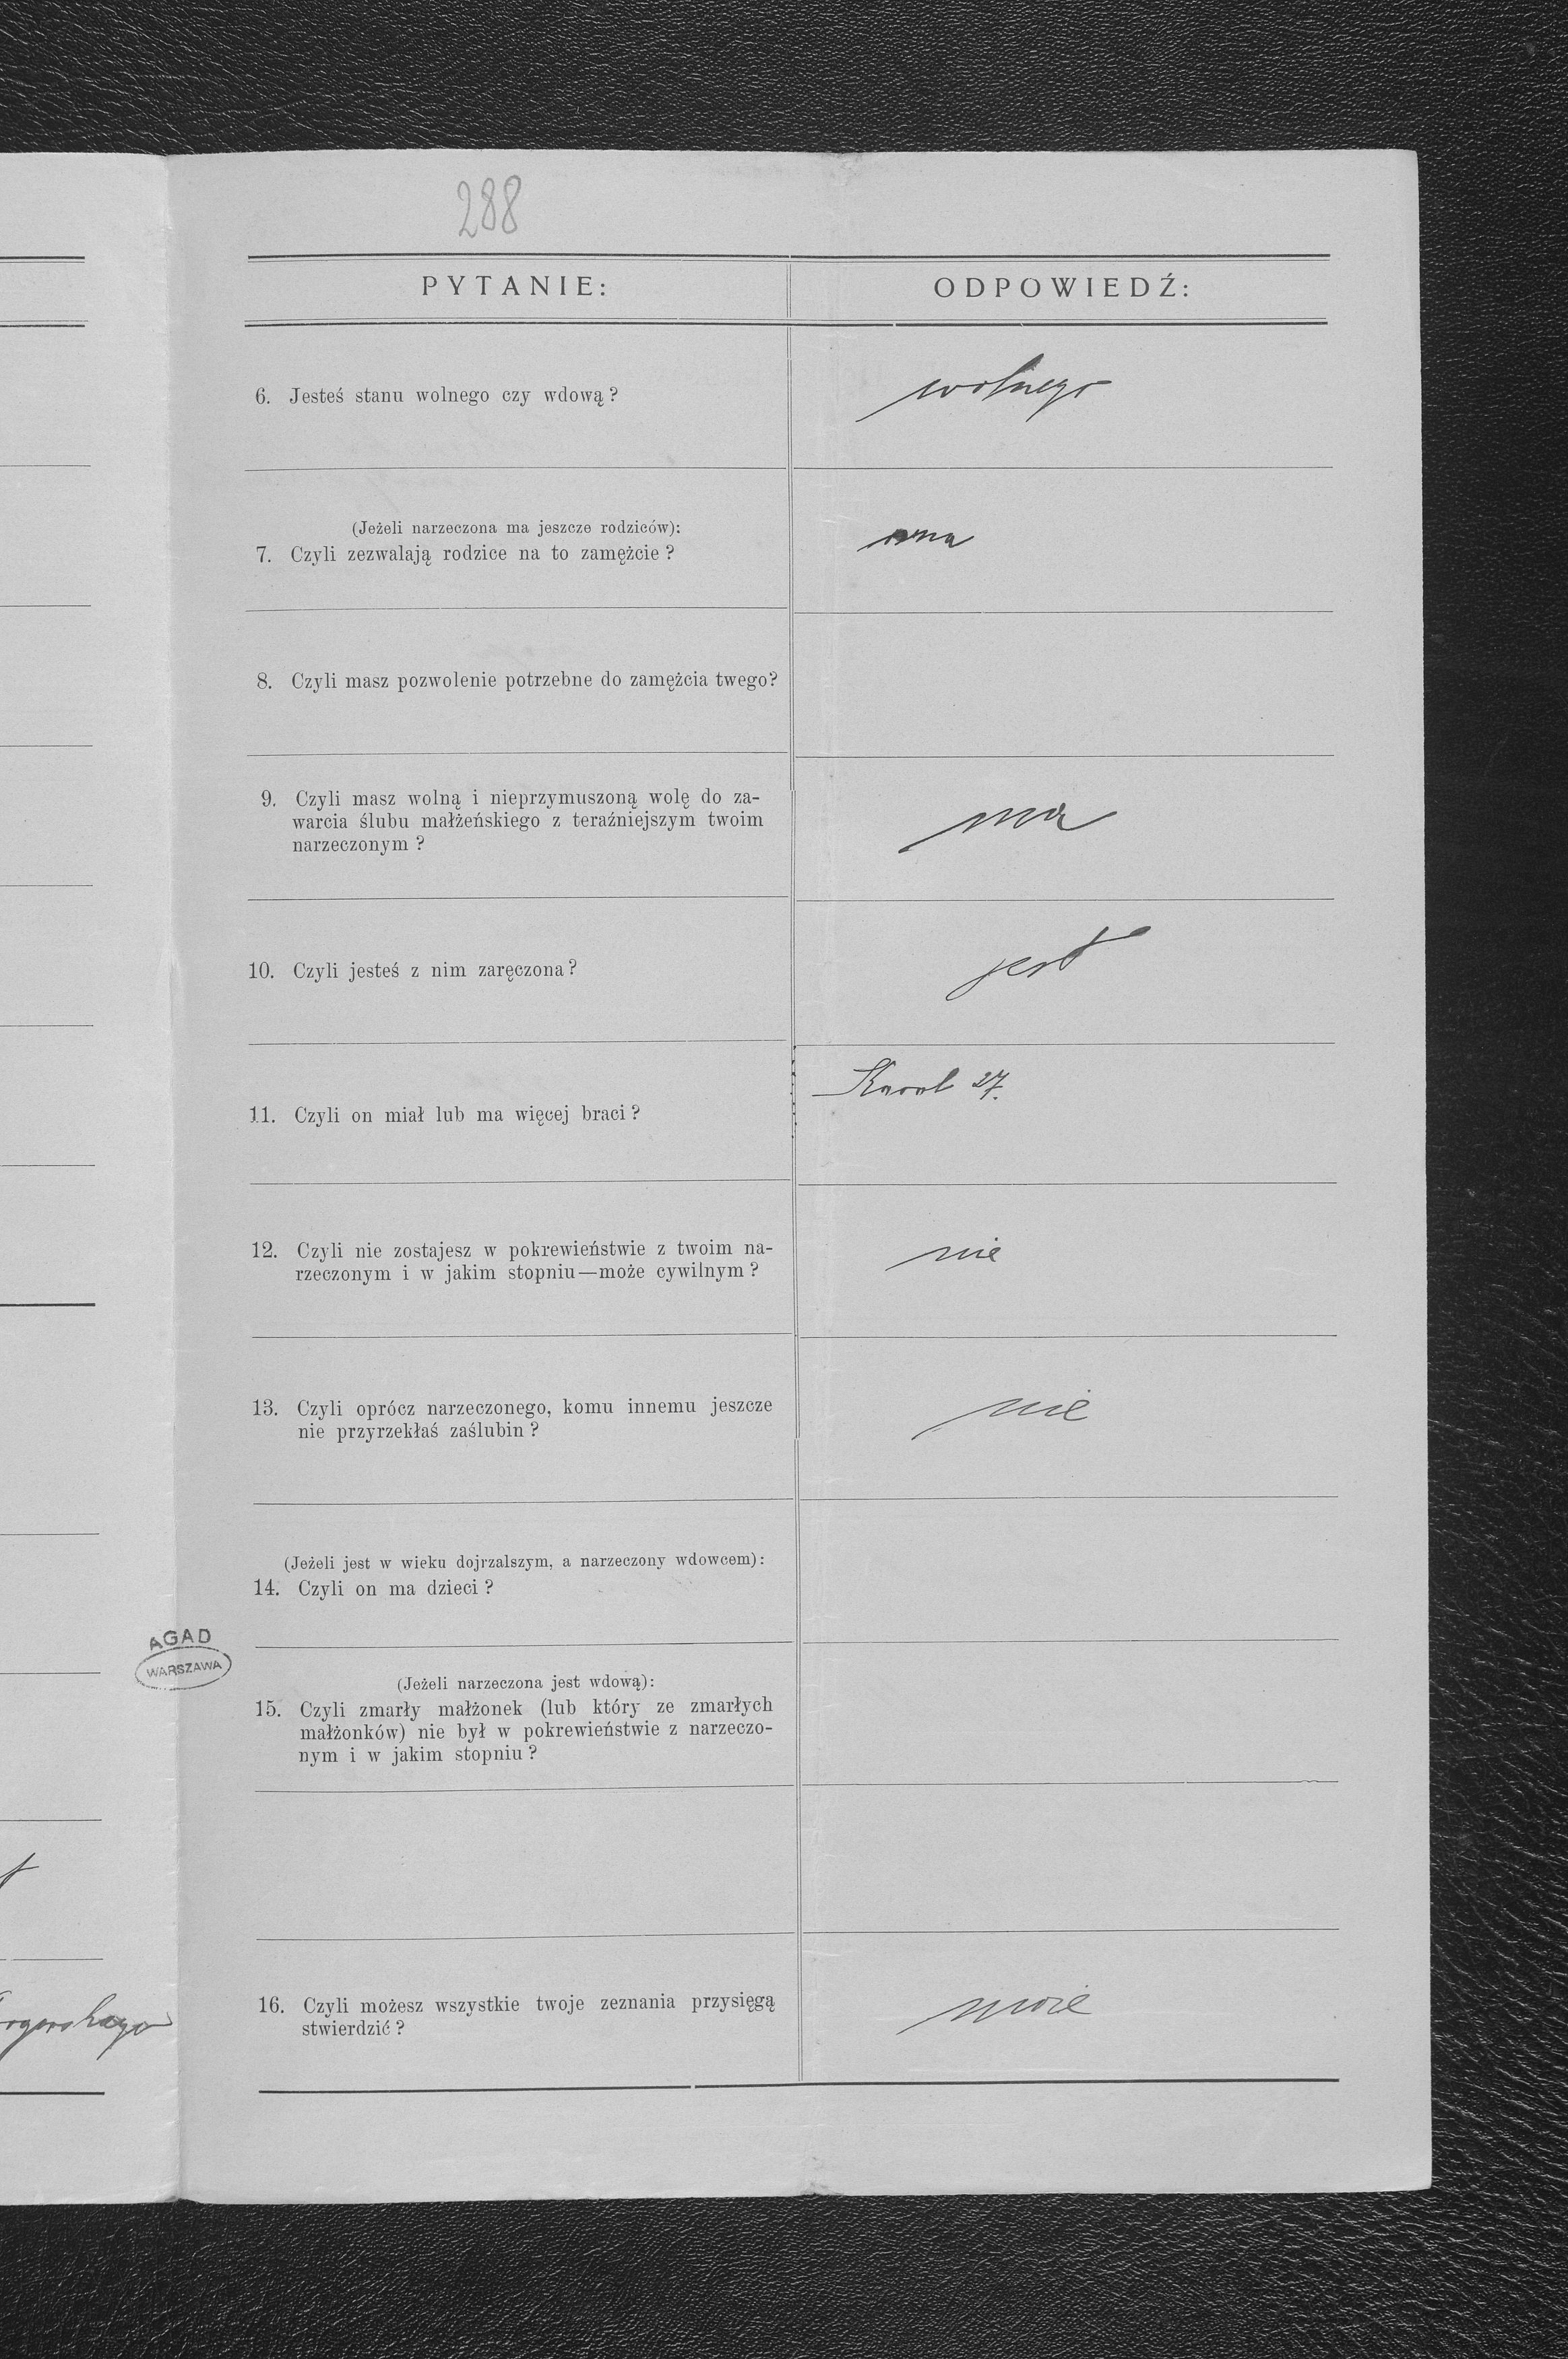 288
PYTANIE:
ODPOWIEDŹ:
6. Jesteś stanu wolnego czy wdową?
wolnego
(Jeżeli narzeczona ma jeszcze rodziców):
7. Czyli zezwalają rodzice na to zamężcie?
8. Czyli masz pozwolenie potrzebne do zamężcia twego?
9. Czyli masz wolną i nieprzymuszoną wolę do za-
warcia ślubu małżeńskiego z teraźniejszym twoim
narzeczonym?
ma
10. Czyli jesteś z nim zaręczona?
jest
11. Czyli on miał lub ma więcej braci?
Karol 27.
12. Czyli nie zostajesz w pokrewieństwie z twoim na-
rzeczonym i w jakim stopniu—może cywilnym?
nie
13. Czyli oprócz narzeczonego, komu innemu jeszcze
nie przyrzekłaś zaślubin?
nie
(Jeżeli jest w wieku dojrzalszym, a narzeczony wdowcem):
14. Czyli on ma dzieci?
AGAD
WARSZAWA
(Jeżeli narzeczona jest wdową):
15. Czyli zmarły małżonek (lub który ze zmarłych
małżonków) nie był w pokrewieństwie z narzeczo-
nym i w jakim stopniu?
16. Czyli możesz wszystkie twoje zeznania przysięgą
stwierdzić?
może